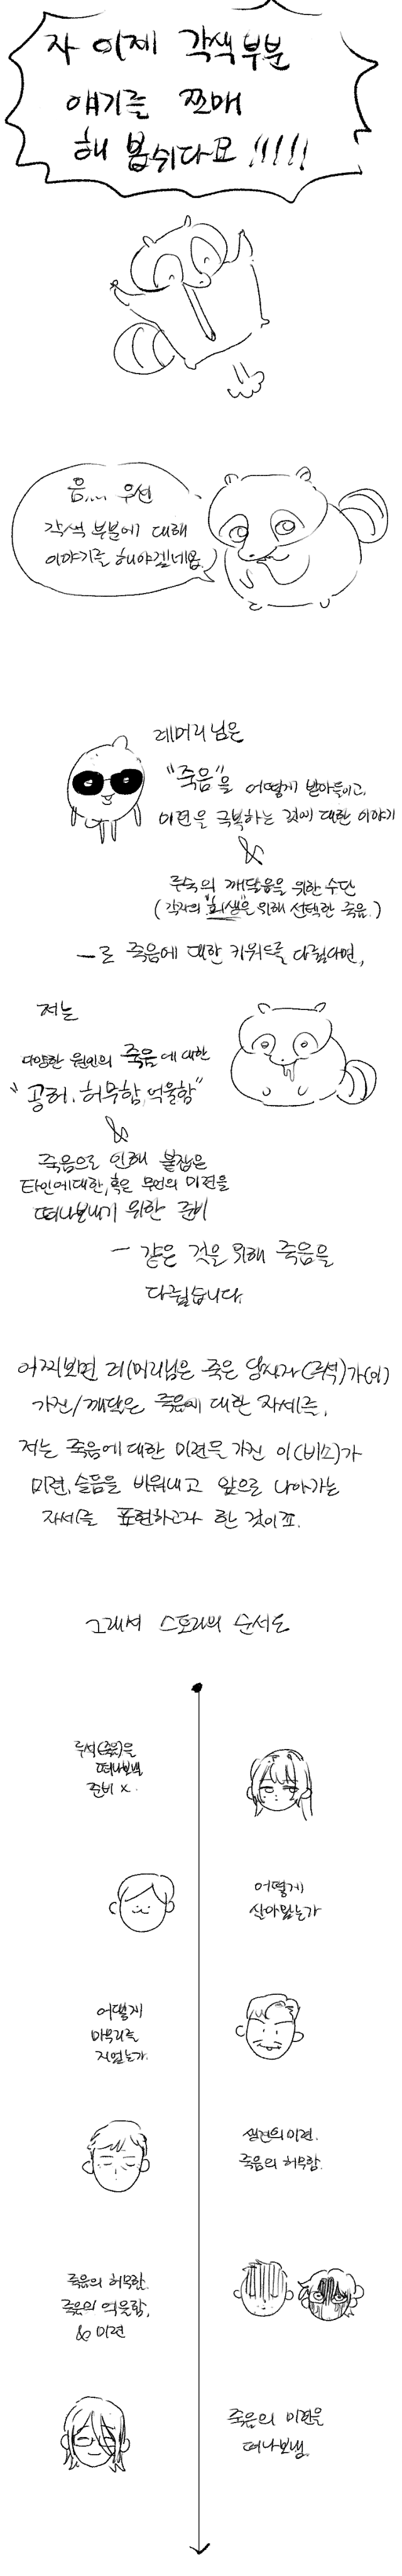 자 이제 각색부분
얘기를 쪼매
해 봅쉬다요!!!!!
음.... 우선
각색 부분에 대해
이야기를 해야겠네요.
레머리님은
"죽음"을 어떻게 받아들이고,
미련을 극복하는 것에 대한 이야기
&
루석의 깨달음을 위한 수단
(각자의 "희생"을 위해 선택한 죽음.)
ㅡ로 죽음에 대한 키워드를 다뤘다면,
저는
다양한 원인의 죽음에 대한
"공허, 허무함, 억울함"
&
죽음으로 인해 붙잡은
타인에대한, 혹은 무언의 미련을
떠나보내기 위한 준비
ㅡ 같은 것을 위해 죽음을
다뤘습니다.
어찌보면 레머리님은 죽은 당사자(루석)가(이)
가진/깨달은 죽음에 대한 자세를,
저는 죽음에 대한 미련을 가진 이(비소)가
미련, 슬픔을 비워내고 앞으로 나아가는
자세를 표현하고자 한 것이죠.
그래서 스토리의 순서도
루석(죽음)을
떠나보낼
준비 x.
어떻게
살아왔는가
어떻게
마무리를
지었는가.
생전의 미련.
죽음의 허무함.
죽음의 허무함.
죽음의 억울함,
& 미련
죽음의 미련을
떠나보냄.